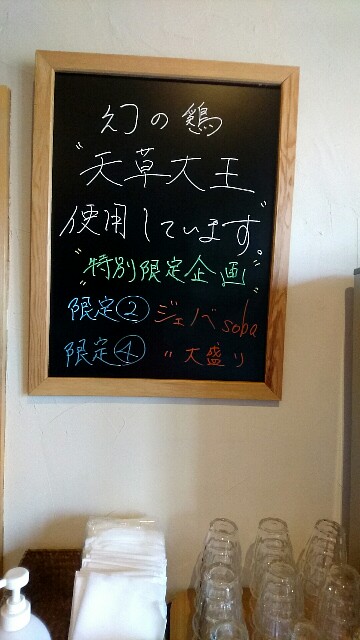 幻の鶏
"天草大王"
使用しています。
"特別限定企画"
限定② ジェノベsoba
限定④ 〃 大盛り